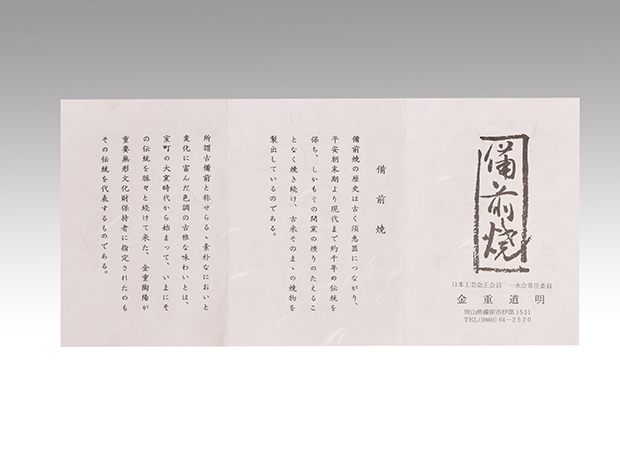 備前焼
日本工芸会正会員 一水会常任委員
金重道明
岡山県備前市伊部1531
TEL(0869) 64-2520
備前焼
備前焼の歴史は古く須恵器につながり、
平安朝末期より現代まで約千年の伝統を
保ち、しかもその間窯の煙りのたえるこ
となく焼き続け、古来そのまゝの焼物を
製出しているのである。
所謂古備前と称せらるゝ素朴なにおいと
変化に富んだ色調の古雅な味わいとは、
室町の大窯時代から始まって、いまにそ
の伝統を脈々と続けて来た、金重陶陽が
重要無形文化財保持者に指定されたのも
その伝統を代表するものである。